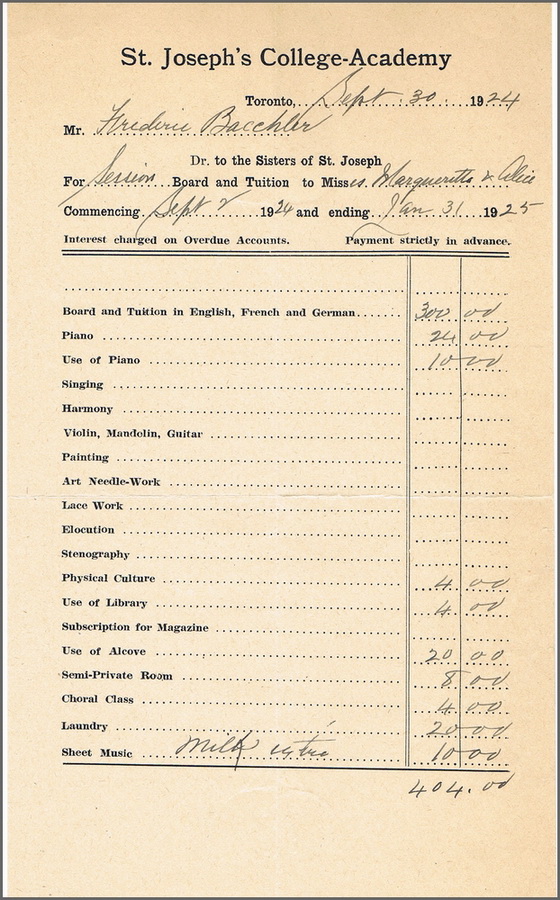 St. Joseph's College-Academy
Toronto, Sept 30 1924
Mr. Frederic Bacchler
Dr. to the Sisters of St. Joseph
For Session Board and Tuition to Misses. Margueritta & Alice
Commencing Sept 2 1924 and ending Jan 31 1925
Interest charged on Overdue Accounts. Payment strictly in advance.
Board and Tuition in English, French and German 300 00
Piano 24 00
Use of Piano 10 00
Singing
Harmony
Violin, Mandolin, Guitar
Painting
Art Needle-Work
Lace Work
Elocution
Stenography
Physical Culture 4 00
Use of Library 4 00
Subscription for Magazine
Use of Alcove 20 00
Semi-Private Room 8 00
Choral Class 4 00
Laundry 20 00
Sheet Music Milk extra 10 00
404.00